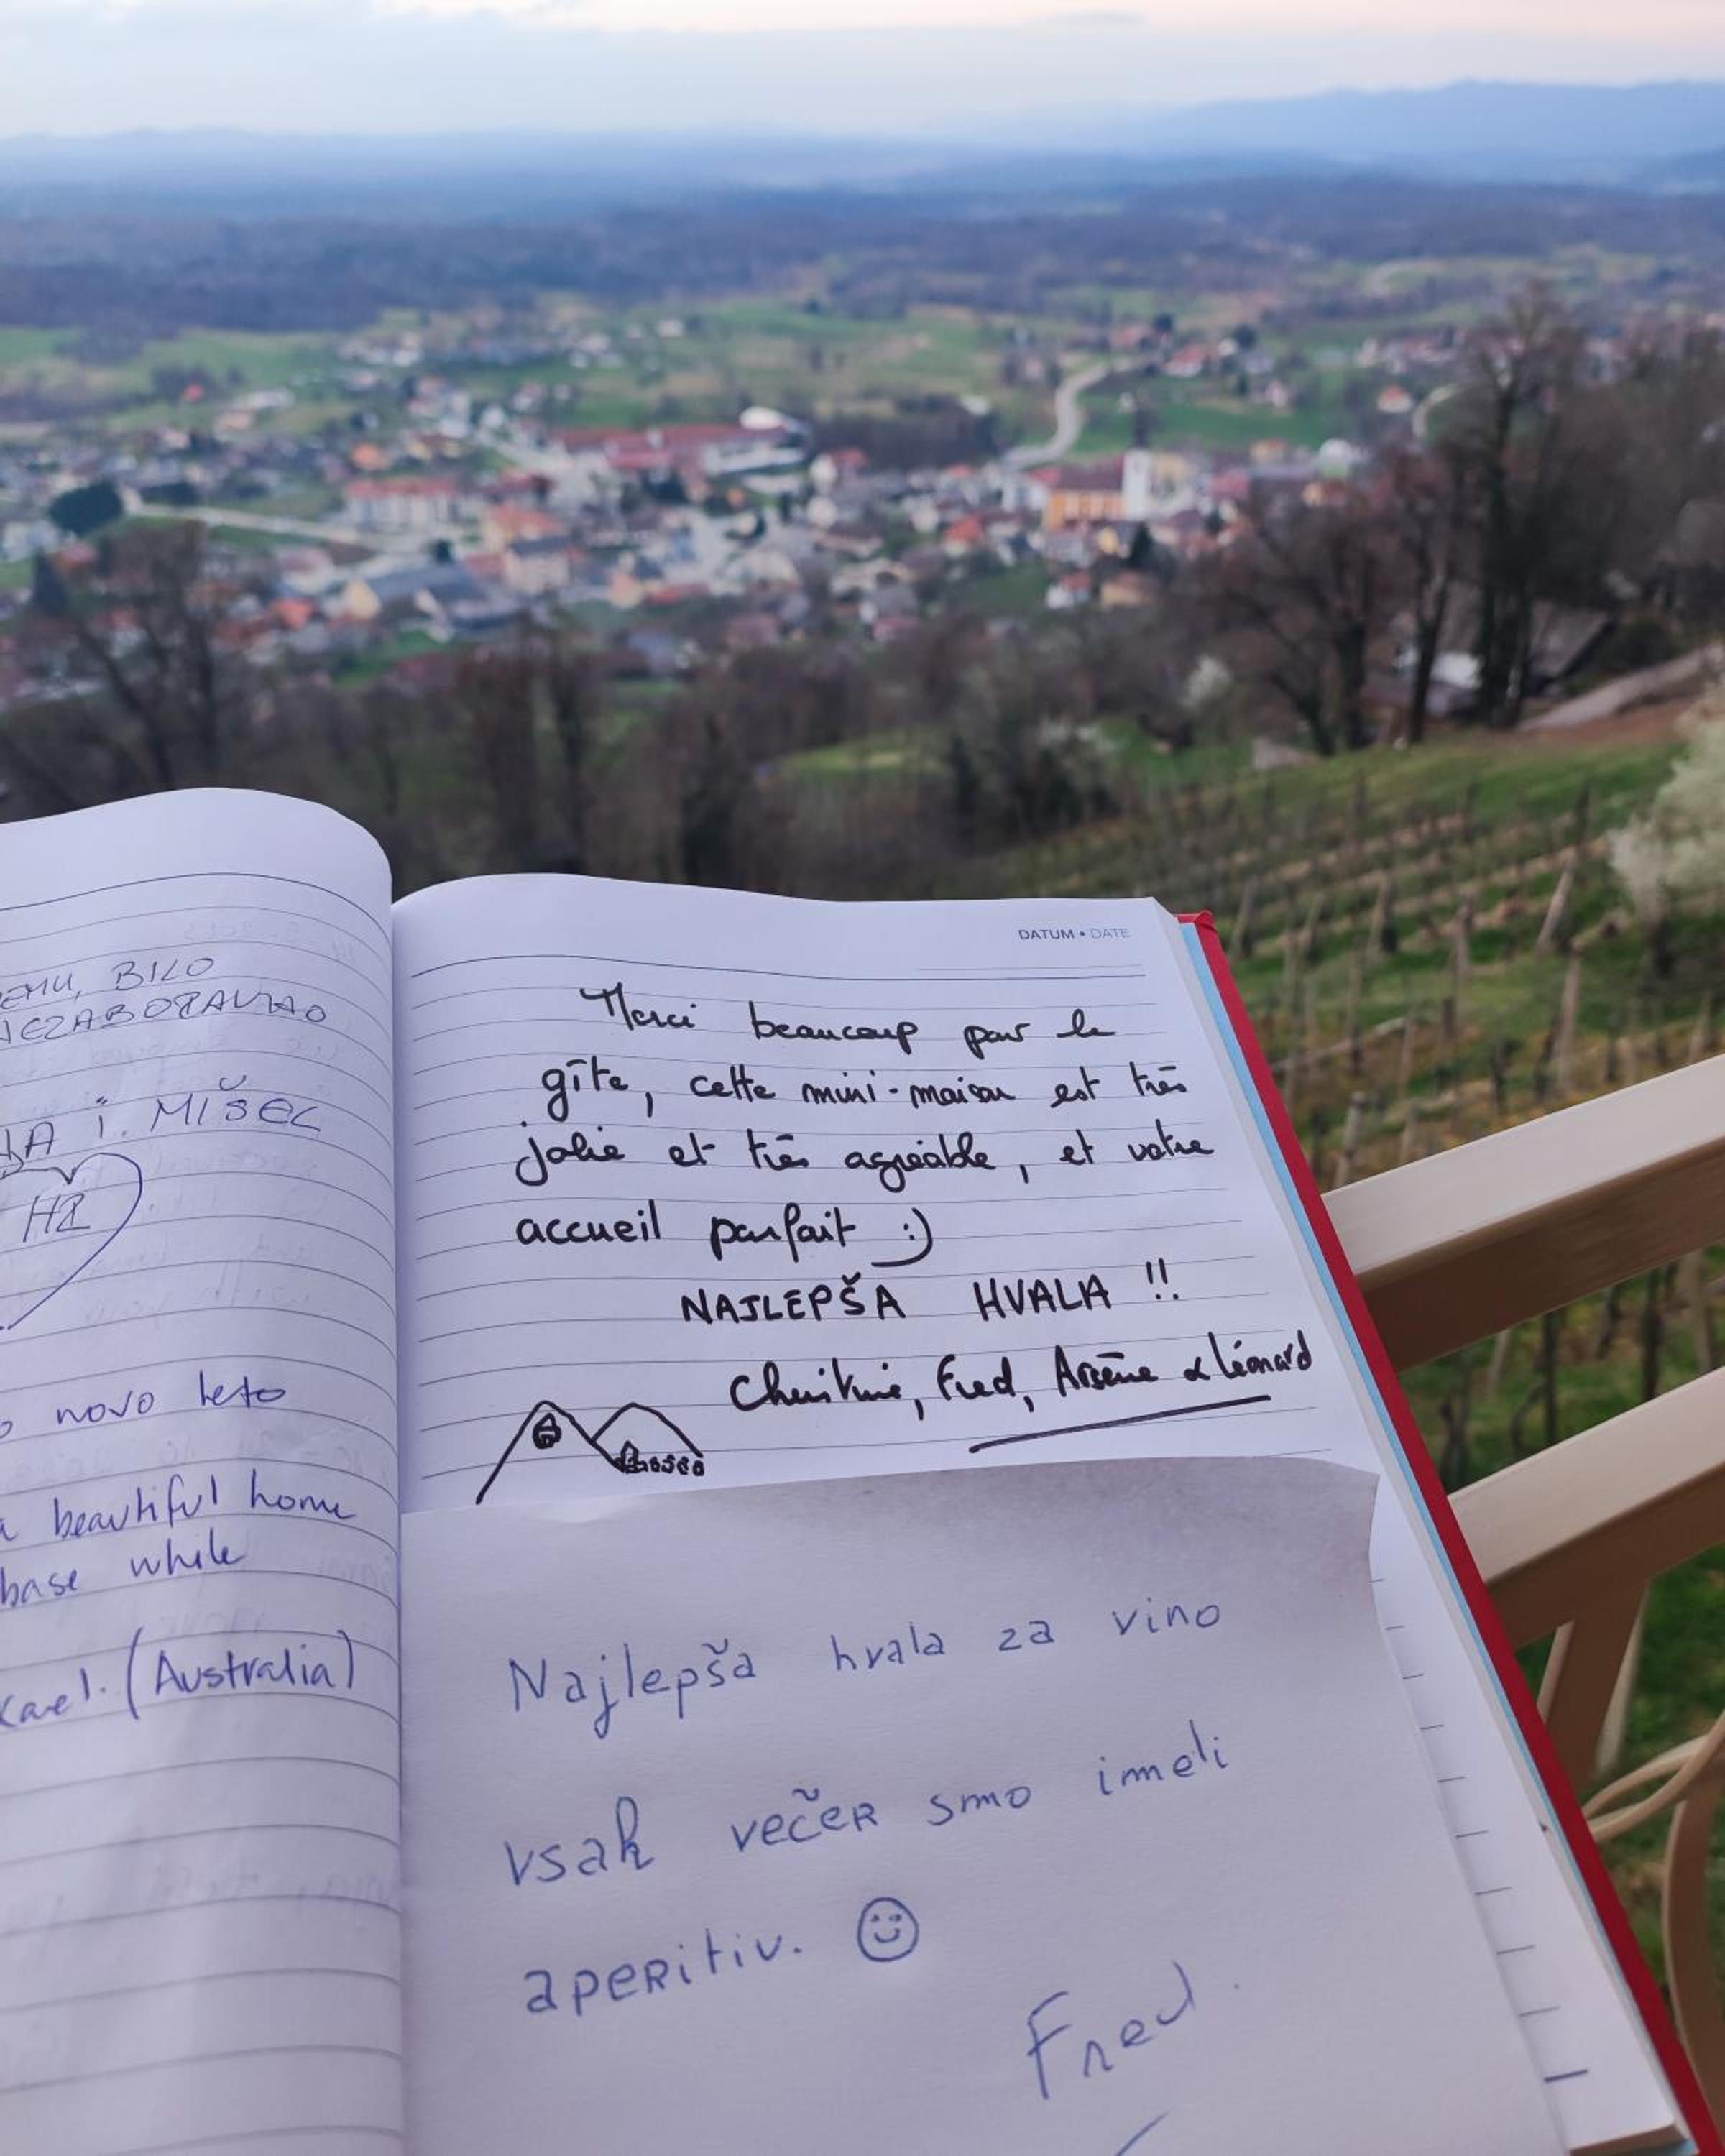 BILO
NEZABORAVNO
i. MIŠEL
HR
novo leto
a beautiful home
base while
(Australia)
DATUM • DATE
Merci beaucoup pour le
gîte, cette mini-maison est très
jolie et très agréable, et votre
accueil parfait :)
NAJLEPŠA HVALA !!
Christine, Fred, Arsène & Léonard
Najlepša hvala za vino
vsak večer smo imeli
aperitiv.
Fred.